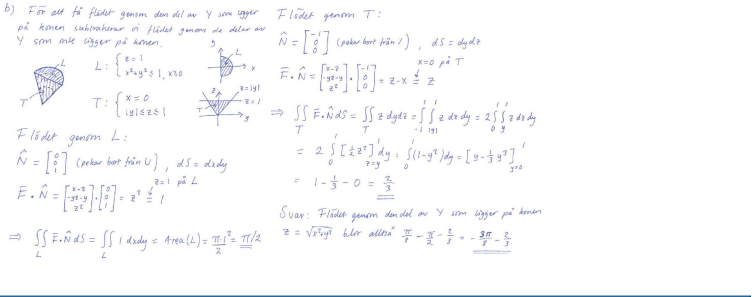 b) För att få flödet genom den del av Y som ligger
på konen subtraherar vi flödet genom de delar av
Y som inte ligger på konen.
L
T
L: { z = 1
x²+y² ≤ 1, x≥0
T: { x = 0
|y| ≤ z ≤ 1
y
L
x
z
z=|y|
z=1
T
y
Flödet genom L:
N̂ = [0 0 1] (pekar bort från U), dS = dxdy
F̄ · N̂ = [x-z -yz-y z²] · [0 0 1] = z² = 1
z=1 på L
⇒ ∬_L F̄·N̂ dS = ∬_L 1 dxdy = Area(L) = π·1²/2 = π/2
Flödet genom T:
N̂ = [-1 0 0] (pekar bort från U), dS = dydz
x=0 på T
F̄·N̂ = [x-z -yz-y z²] · [-1 0 0] = z-x = z
⇒ ∬_T F̄·N̂ dS = ∬_T z dydz = ∫_{-1}^{1} ∫_{|y|}^{1} z dz dy = 2 ∫_0^1 ∫_y^1 z dz dy
= 2 ∫_0^1 [½ z²]_{z=y}^1 dy = ∫_0^1 (1-y²) dy = [y - ⅓ y³]_{y=0}^1
= 1 - 1/3 - 0 = 2/3
Svar: Flödet genom den del av Y som ligger på konen
z = √(x²+y²) blir alltså π/8 - π/2 - 2/3 = - 3π/8 - 2/3